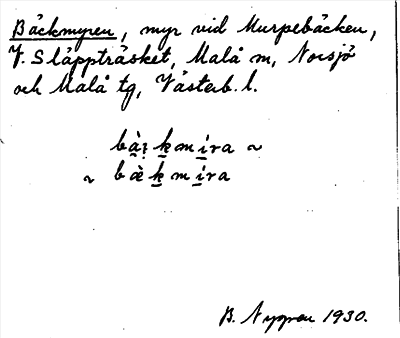 Bäckmyren, myr vid Murpebäcken,
V. Släppträsket, Malå m, Norsjö
och Malå tg, Västerb. l.
bà̱ꝫ ḵmí̱ra ~
~ bæ̀ ḵmí̱ra
B. Nygren 1930.